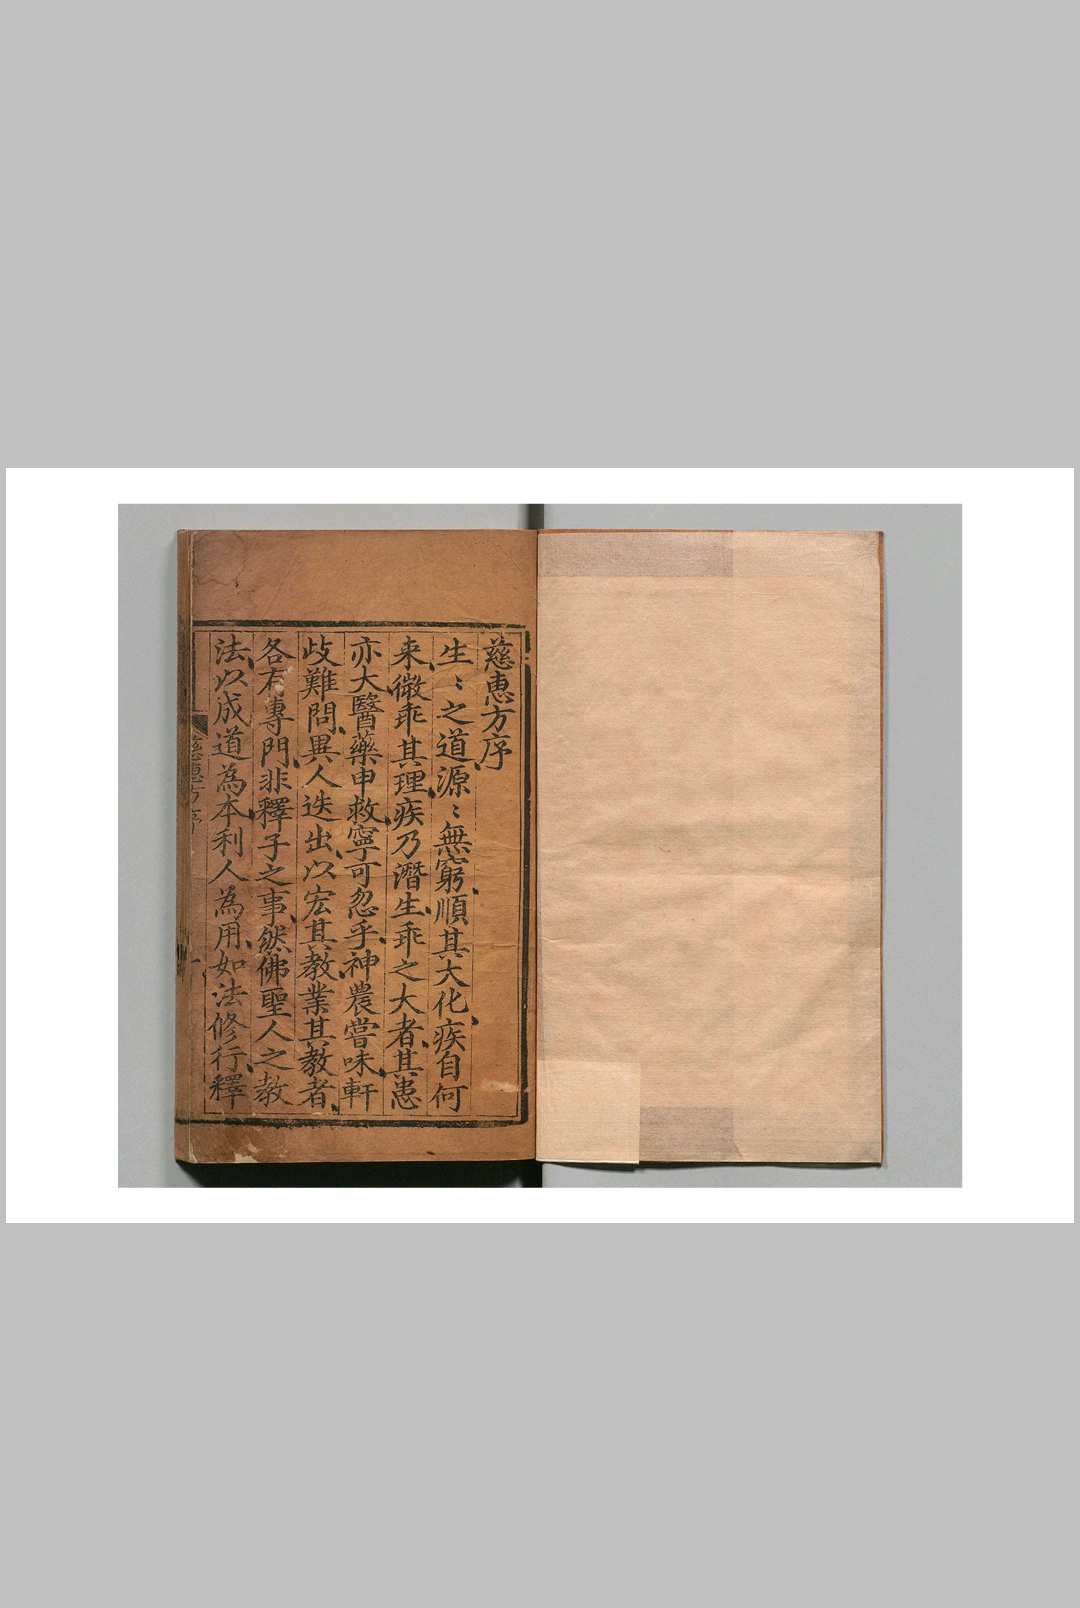 慈惠方序
生〻之道源〻無窮順其大化疾自何
来微乖其理疾乃潛生乖之大者其患
亦大醫藥申救寧可忽乎神農嘗味軒
歧難問異人迭出以宏其教業其教者
各有專門非釋子之事然佛聖人之教
法以成道為本利人為用如法修行釋
慈惠方序
一